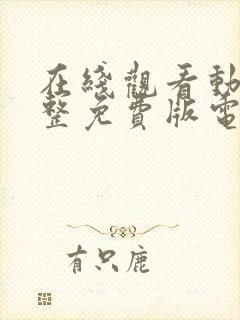 在綫觀看動
整免費版電
有只鹿